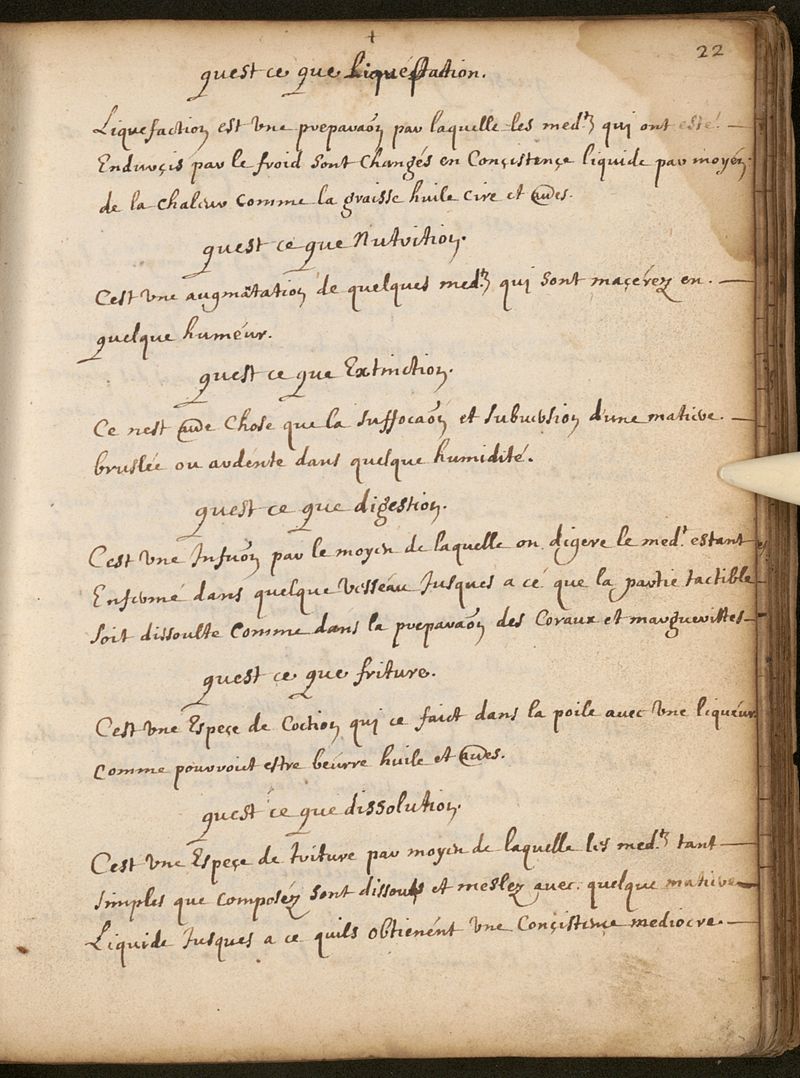 22
quest ce que Liquefaction.
Liquefaction est vne preparaõn par laquelle les medts qui ont esté
Endurçis par le froid sont Changés en Conçistençe liquide par moyen
de la Chaleur Comme la graisse huile cire et aũes.
quest ce que Nutrition.
Cest vne augmãtation de quelques medts qui sont maçérez en.
quelque huméur.
quest ce que Extinction.
Ce nest aũe Chose que la suffocaõn et submersion d'une matiere.
bruslée ou ardente dans quelque humidité.
quest ce que digestion.
Cest vne Infuõn par le moyen de laquelle on digere le medt estant
Enfermé dans quelque vesseau Jusques a cé que la partie tactible
soit dissoulte Comme dans la preparaõn des Coraux et marguerittes
quest ce que friture.
Cest vne Espeçe de Coction qui ce faict dans la poile avec vne liqueur
Comme pourroit estre beurre huile et aũes.
quest ce que dissolution.
Cest vne Espeçe de triture par moyen de laquelle les medts tant
simples que Composéz sont dissouls et meslez avec quelque matiere
Liquide Jusques a ce quils obtienént vne Conçistence mediocre.